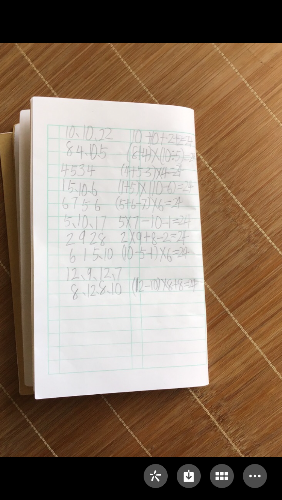 10、10、2、2 10+10+2+2=24
8 4 10 5 (8+4)×(10÷5)=24
4 5 3 4 (4+5-3)×4=24
1 5、10、6 (1+5)×(10-6)=24
6、7 5 6 (5+6-7)×6=24
5、10、1 7 5×7-10-1=24
2、9 2 8 2×9+8-2=24
6 1 5、10 (10-5-1)×6=24
12、9、12、7
8、12、8、10 (12-10)×8+8=24